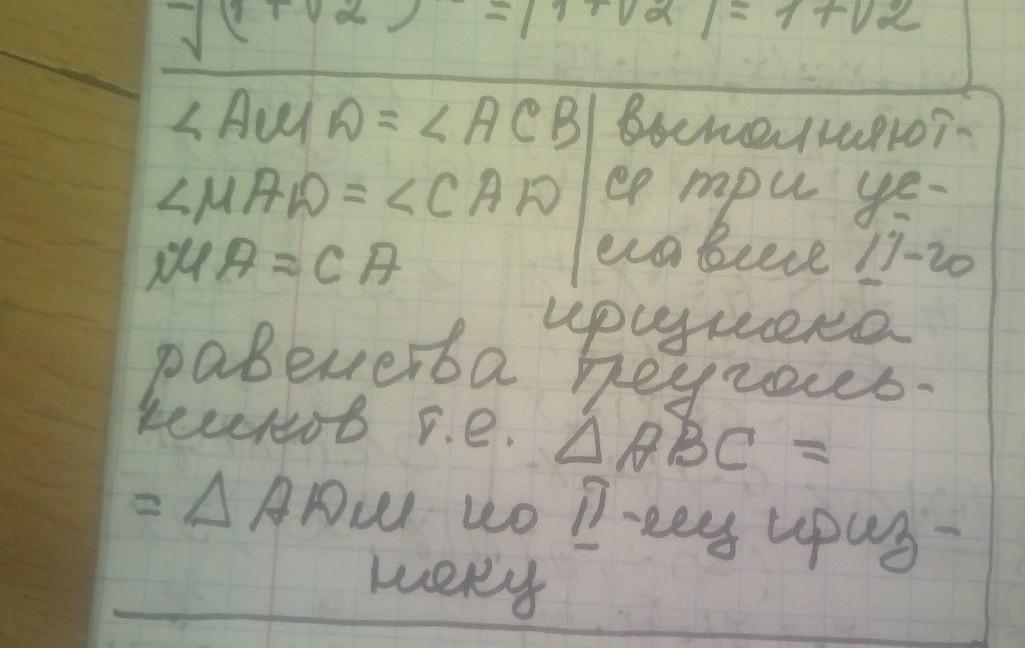 √(1+√2)² = |1+√2| = 1+√2
∠AMD = ∠ACB | выполняют-
∠MAD = ∠CAD | ся три ус-
MA = CA | ловия II-го
признака
равенства треуголь-
ников т.е. △ABC =
= △ADM по II-му приз-
наку